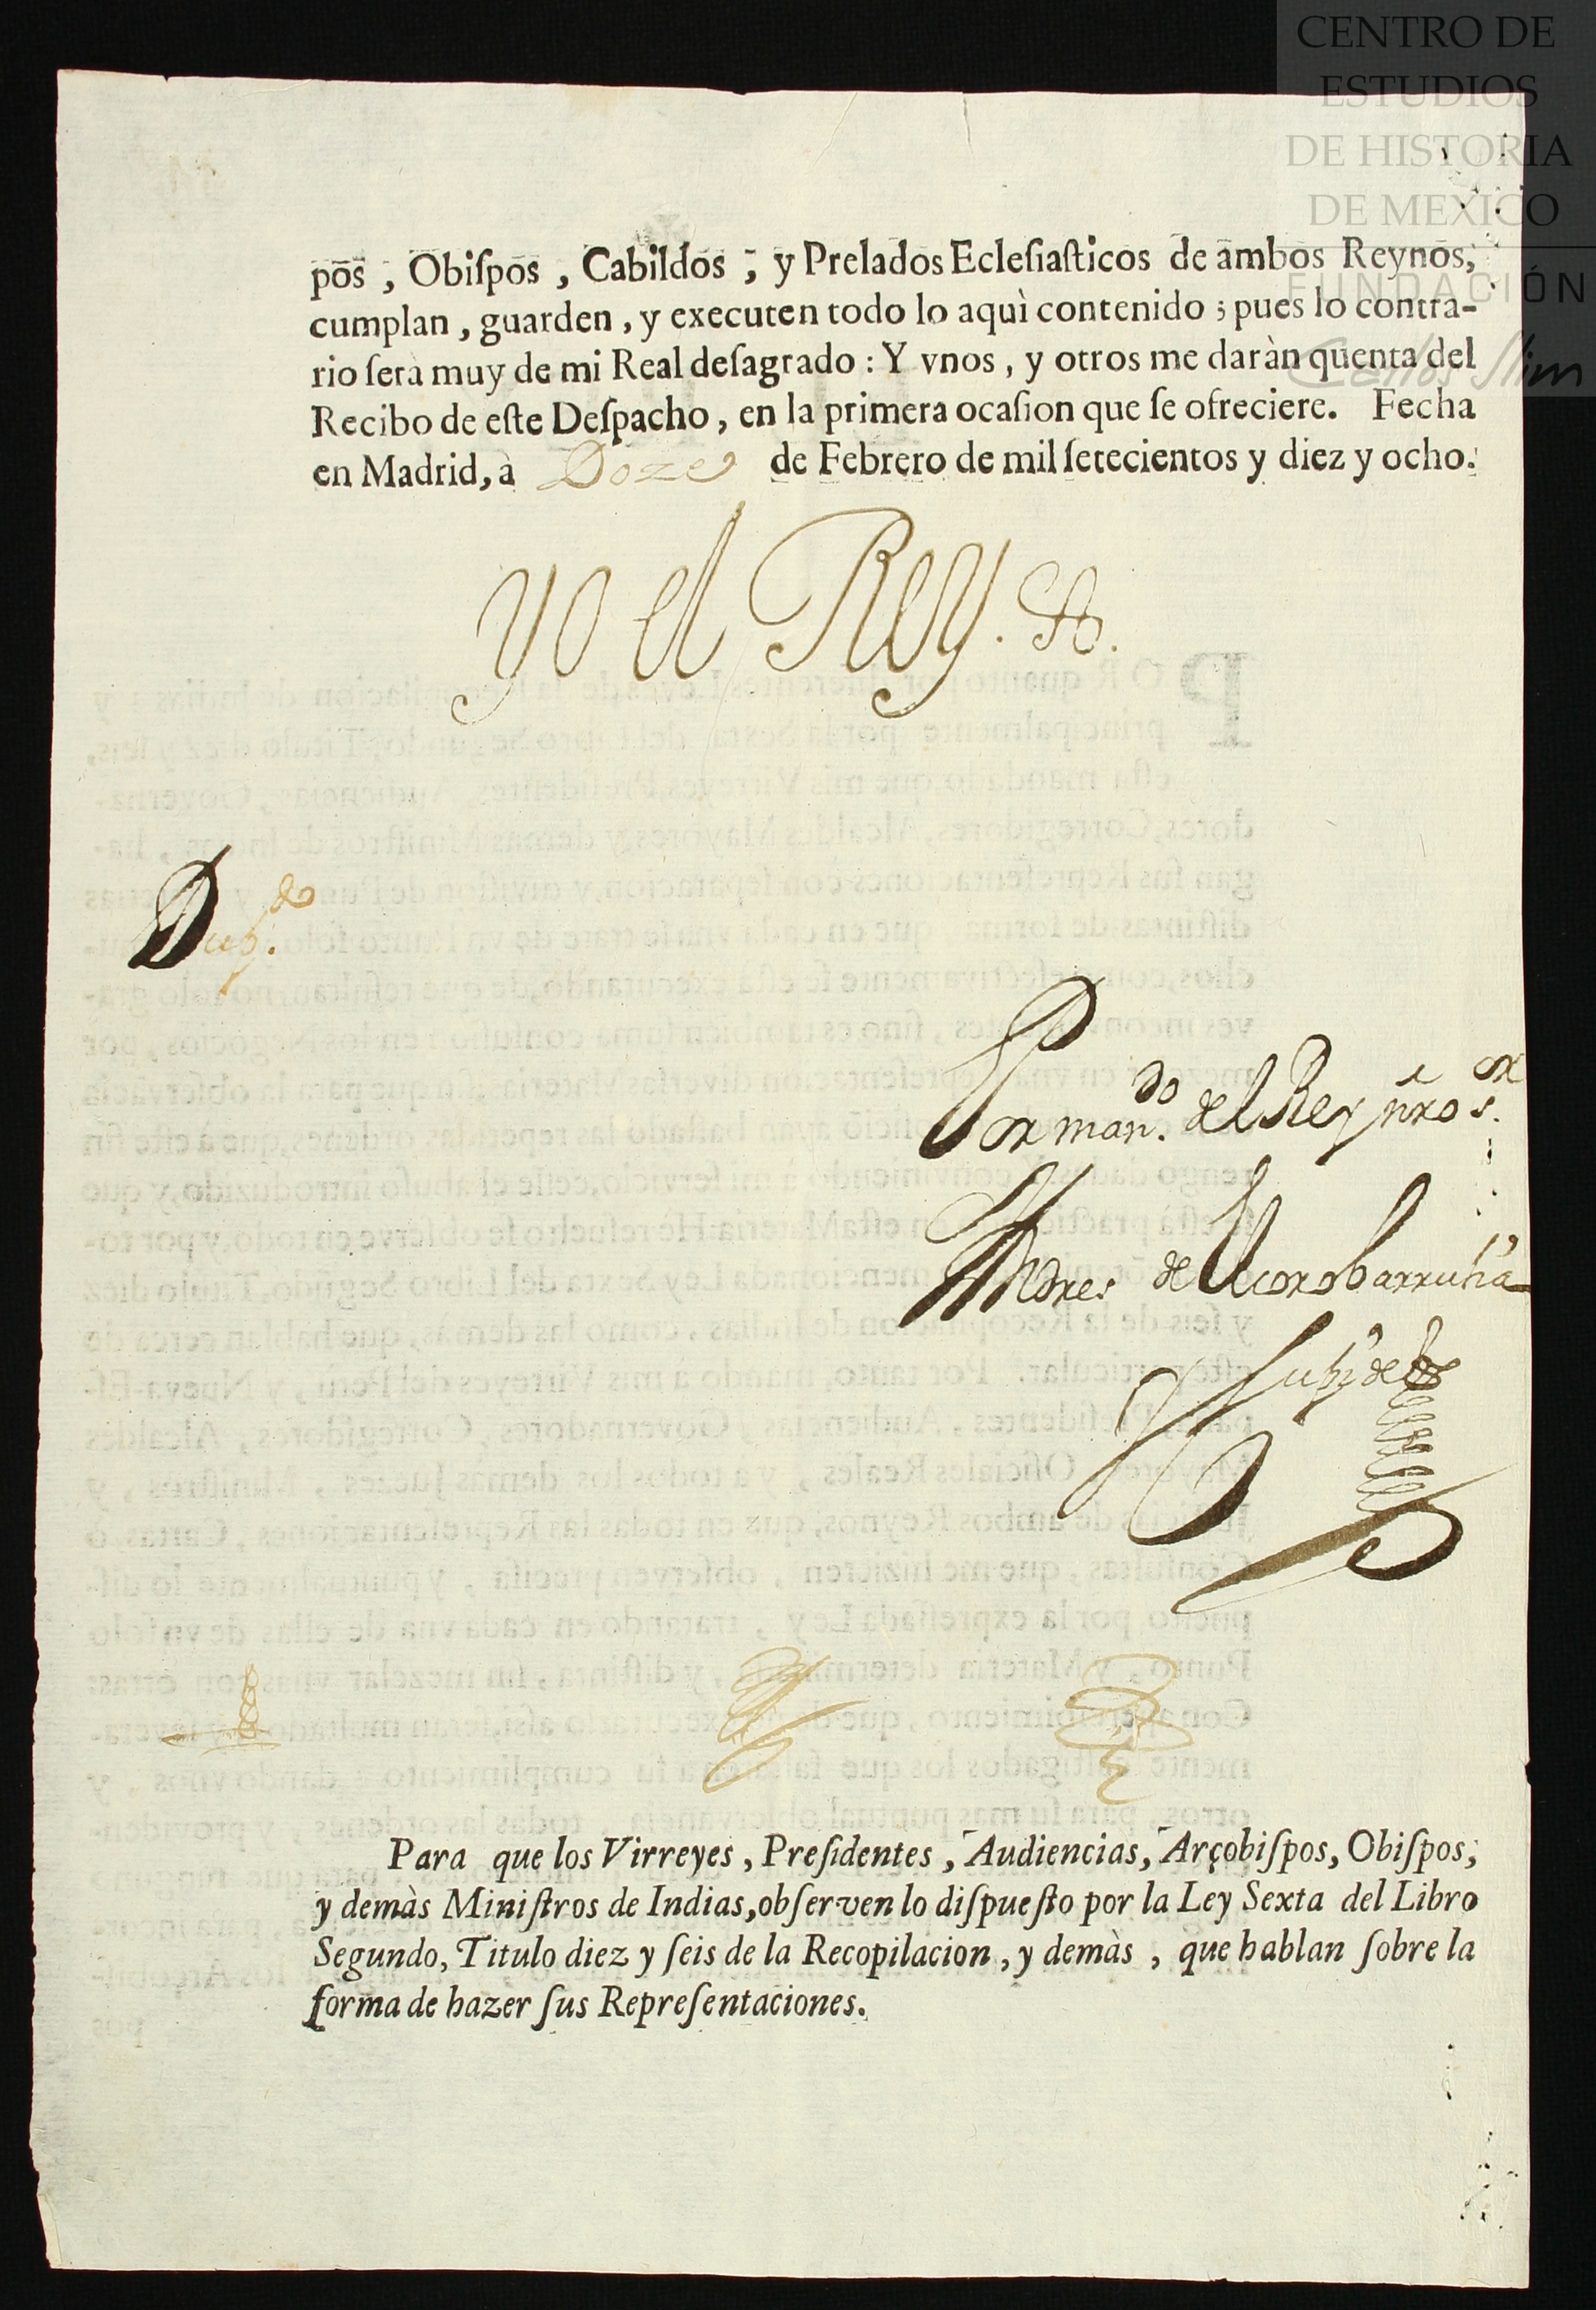 CENTRO DE
ESTUDIOS
DE HISTORIA
DE MEXICO
FUNDACIÓN
Carlos Slim
pos, Obiſpos, Cabildos, y Prelados Eclesiaſticos de ambos Reynos,
cumplan, guarden, y executen todo lo aquì contenido; pues lo contra-
rio ſerà muy de mi Real deſagrado: Y vnos, y otros me daràn quenta del
Recibo de eſte Deſpacho, en la primera ocaſion que ſe ofreciere. Fecha
en Madrid, à Doze de Febrero de mil ſetecientos y diez y ocho.
Yo el Rey.
Dup.do
Por man.do del Rey nro s.or
Andres de
Para que los Virreyes, Preſidentes, Audiencias, Arçobiſpos, Obiſpos,
y demàs Miniſtros de Indias, obſerven lo diſpueſto por la Ley Sexta del Libro
Segundo, Titulo diez y ſeis de la Recopilacion, y demàs, que hablan ſobre la
forma de hazer ſus Repreſentaciones.